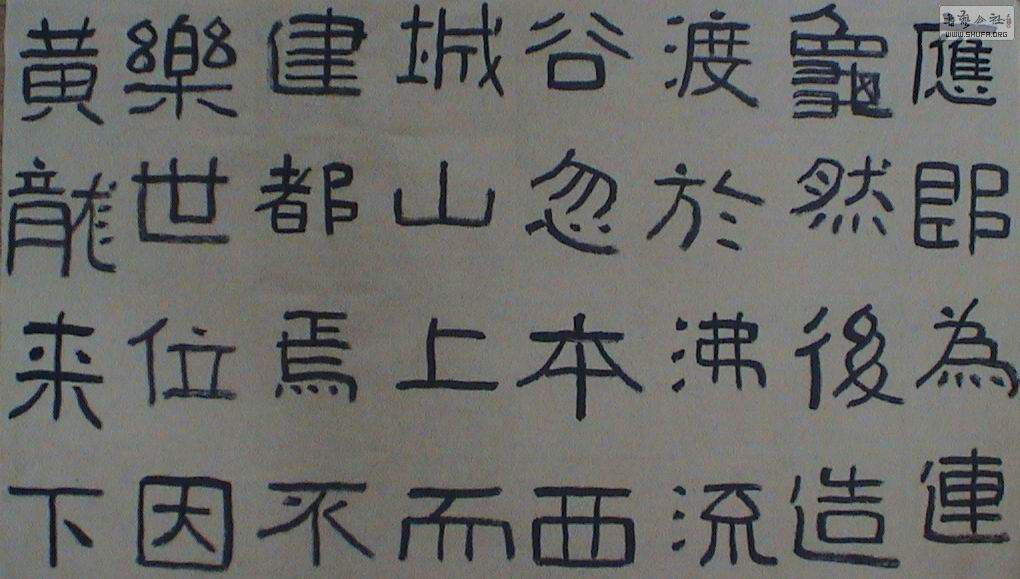 應即為連
龜然後造
渡於沸流
谷忽本西
城山上而
建都焉不
樂世位因
黃龍来下
書藝公社
WWW.SHUFA.ORG